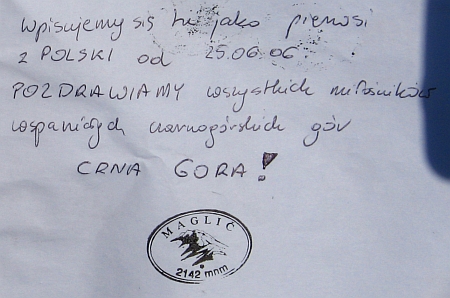 Wpisujemy się tu jako pierwsi
z POLSKI od 25.06.06
POZDRAWIAMY wszystkich miłośników
wspaniałych czarnogórskich gór
CRNA GORA!
MAGLIĆ
2142 mnm